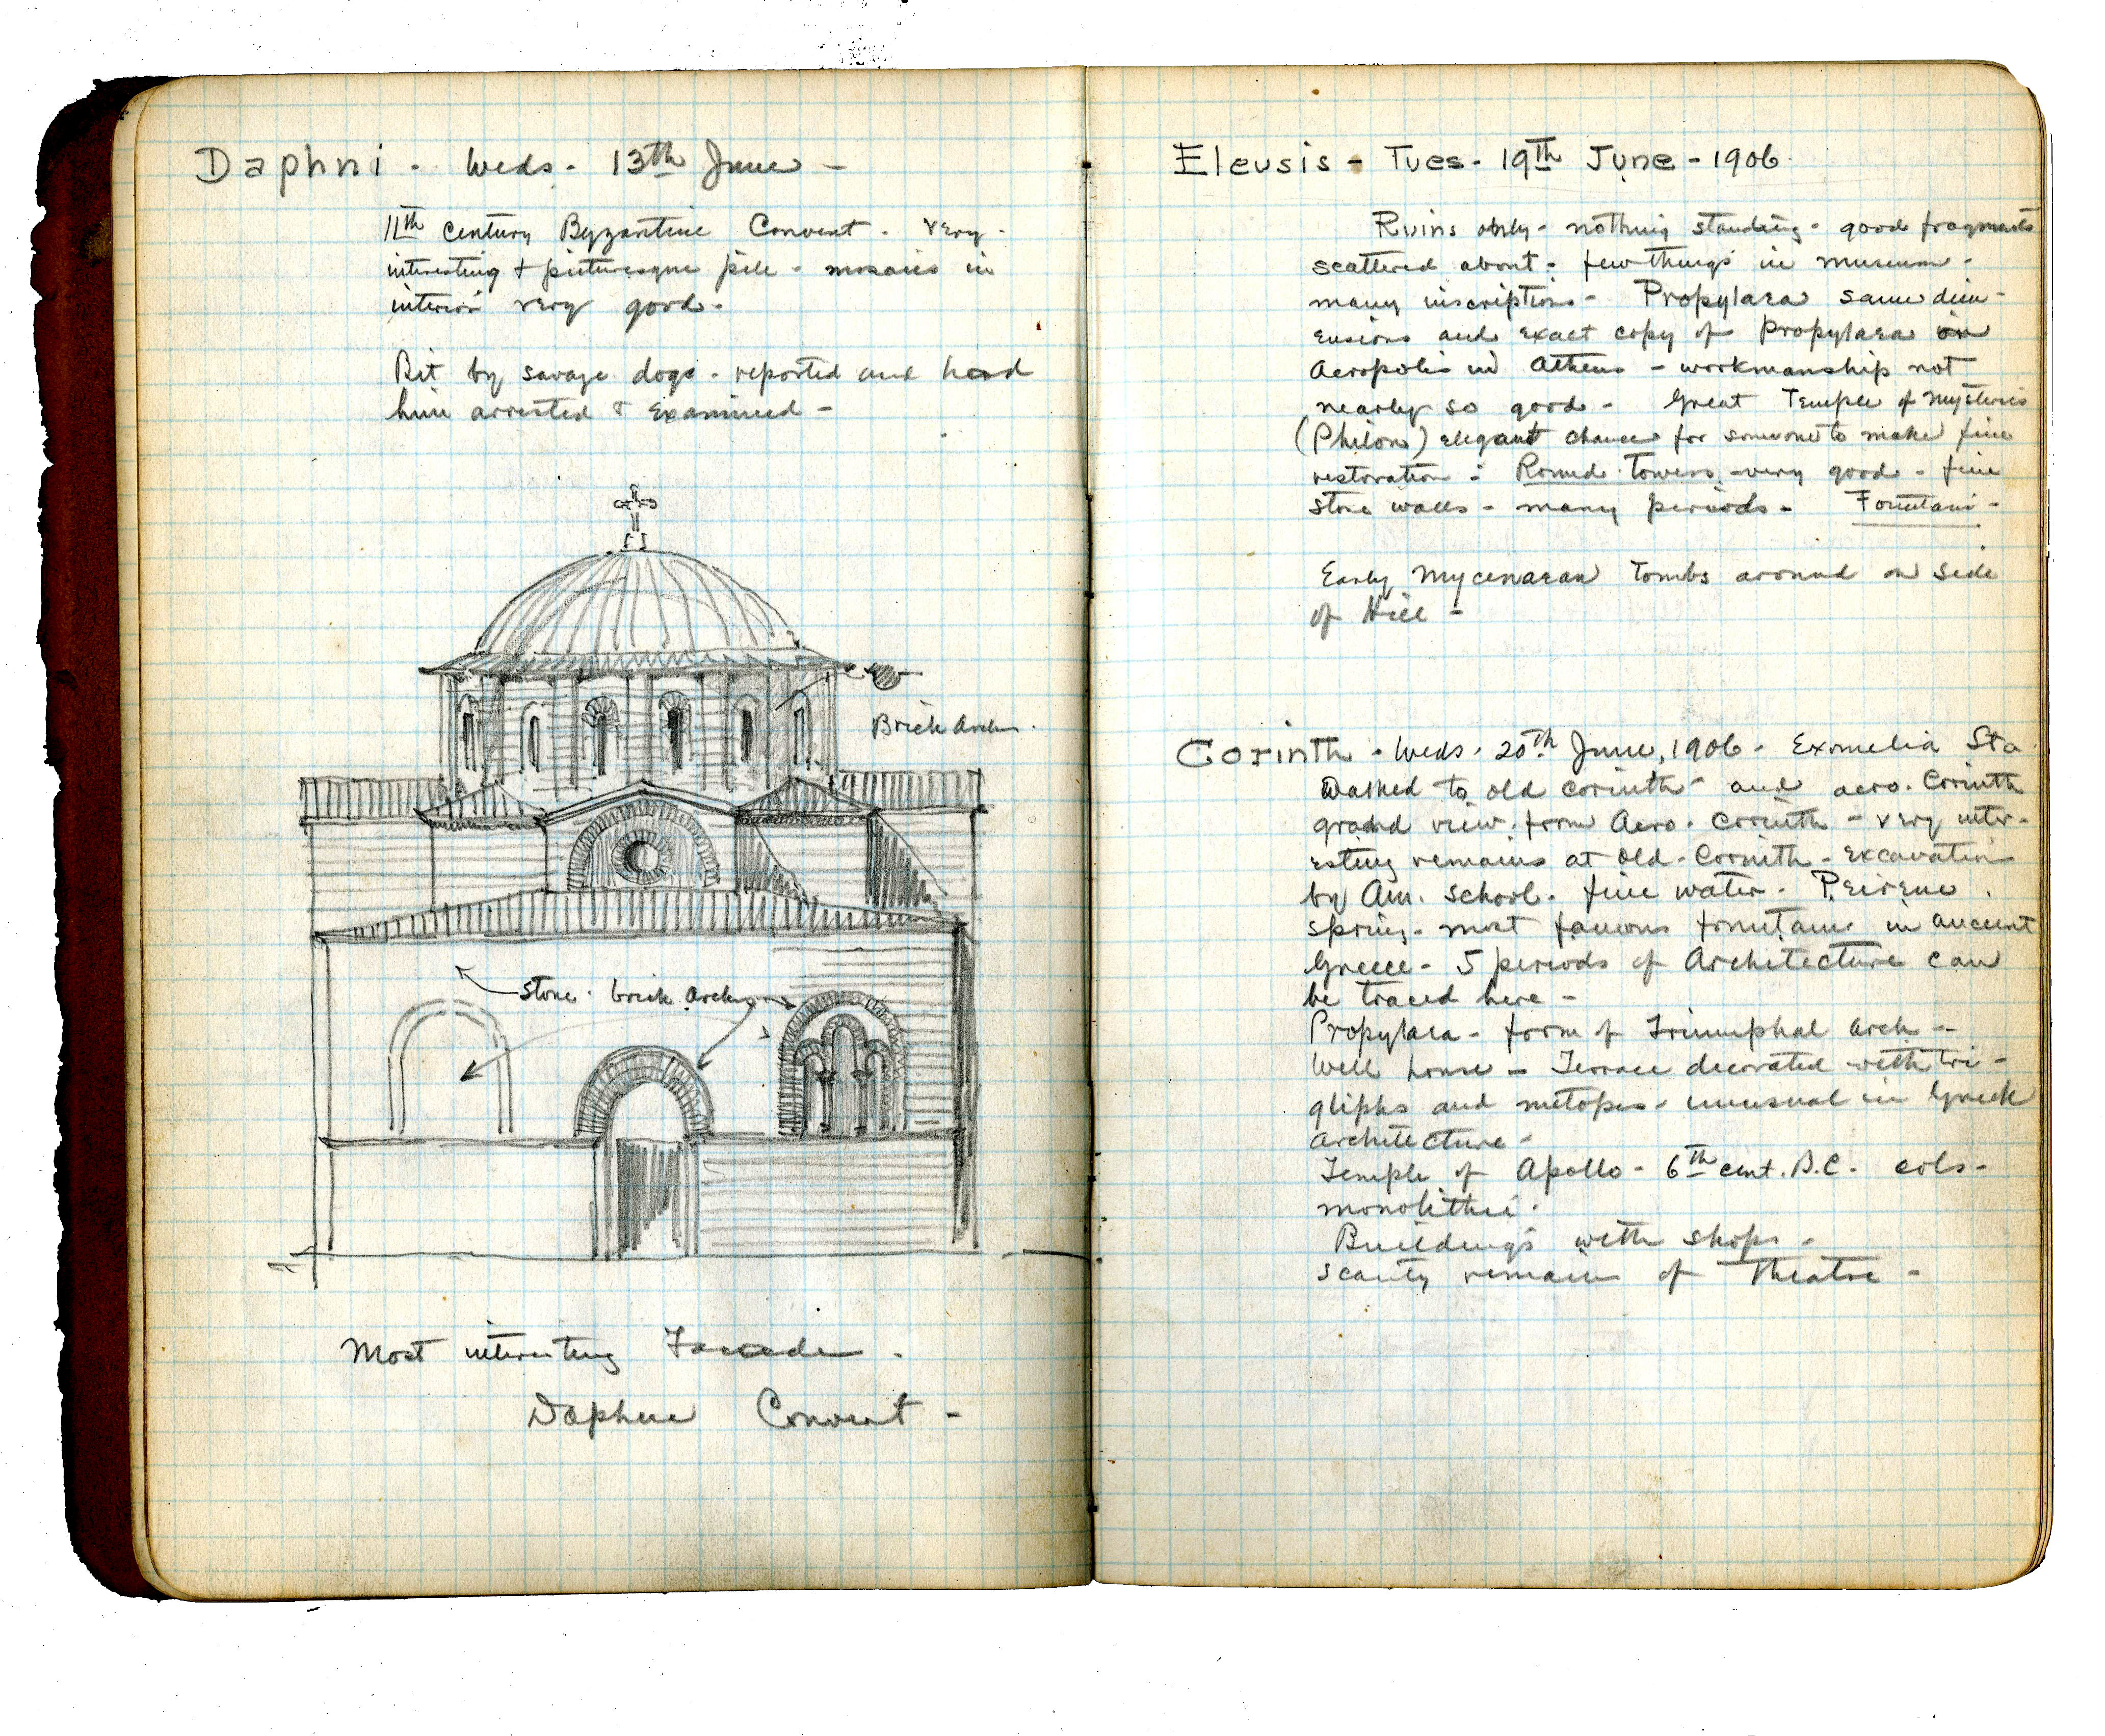 Daphni - Weds - 13th June -
11th Century Byzantine Convent - very -
interesting & picturesque pile - mosaics in
interior very good -
Bit by savage dogs - reported and had
him arrested & examined -
Brick arches
Stone - brick arches
Most interesting Facade -
Daphne Convent -
Eleusis - Tues - 19th June - 1906
Ruins only - nothing standing - good fragments
scattered about - few things in museum -
many inscriptions - Propylaea same dim-
ensions and exact copy of propylaea on
Acropolis in Athens - workmanship not
nearly so good - Great Temple of Mysteries
(Philon) elegant chance for someone to make fine
restoration - Round Towers - very good - fine
stone walls - many periods - Fountain -
Early Mycenaean Tombs around on side
of Hill -
Corinth - Weds - 20th June, 1906 - Exmelia Sta
Walked to old Corinth - and acro. Corinth
grand view from Acro. Corinth - very inter-
esting remains at Old-Corinth - Excavation
by Am. School - fine water - Peirene
spring - most famous fountain in ancient
Greece - 5 periods of Architecture can
be traced here -
Propylaea - form of Triumphal arch -
Well house - Terrace decorated with tri-
gliphs and metopes - unusual in Greek
architecture -
Temple of Apollo - 6th cent. B.C. cols -
monolithic -
Buildings with shops -
scanty remains of Theatre -